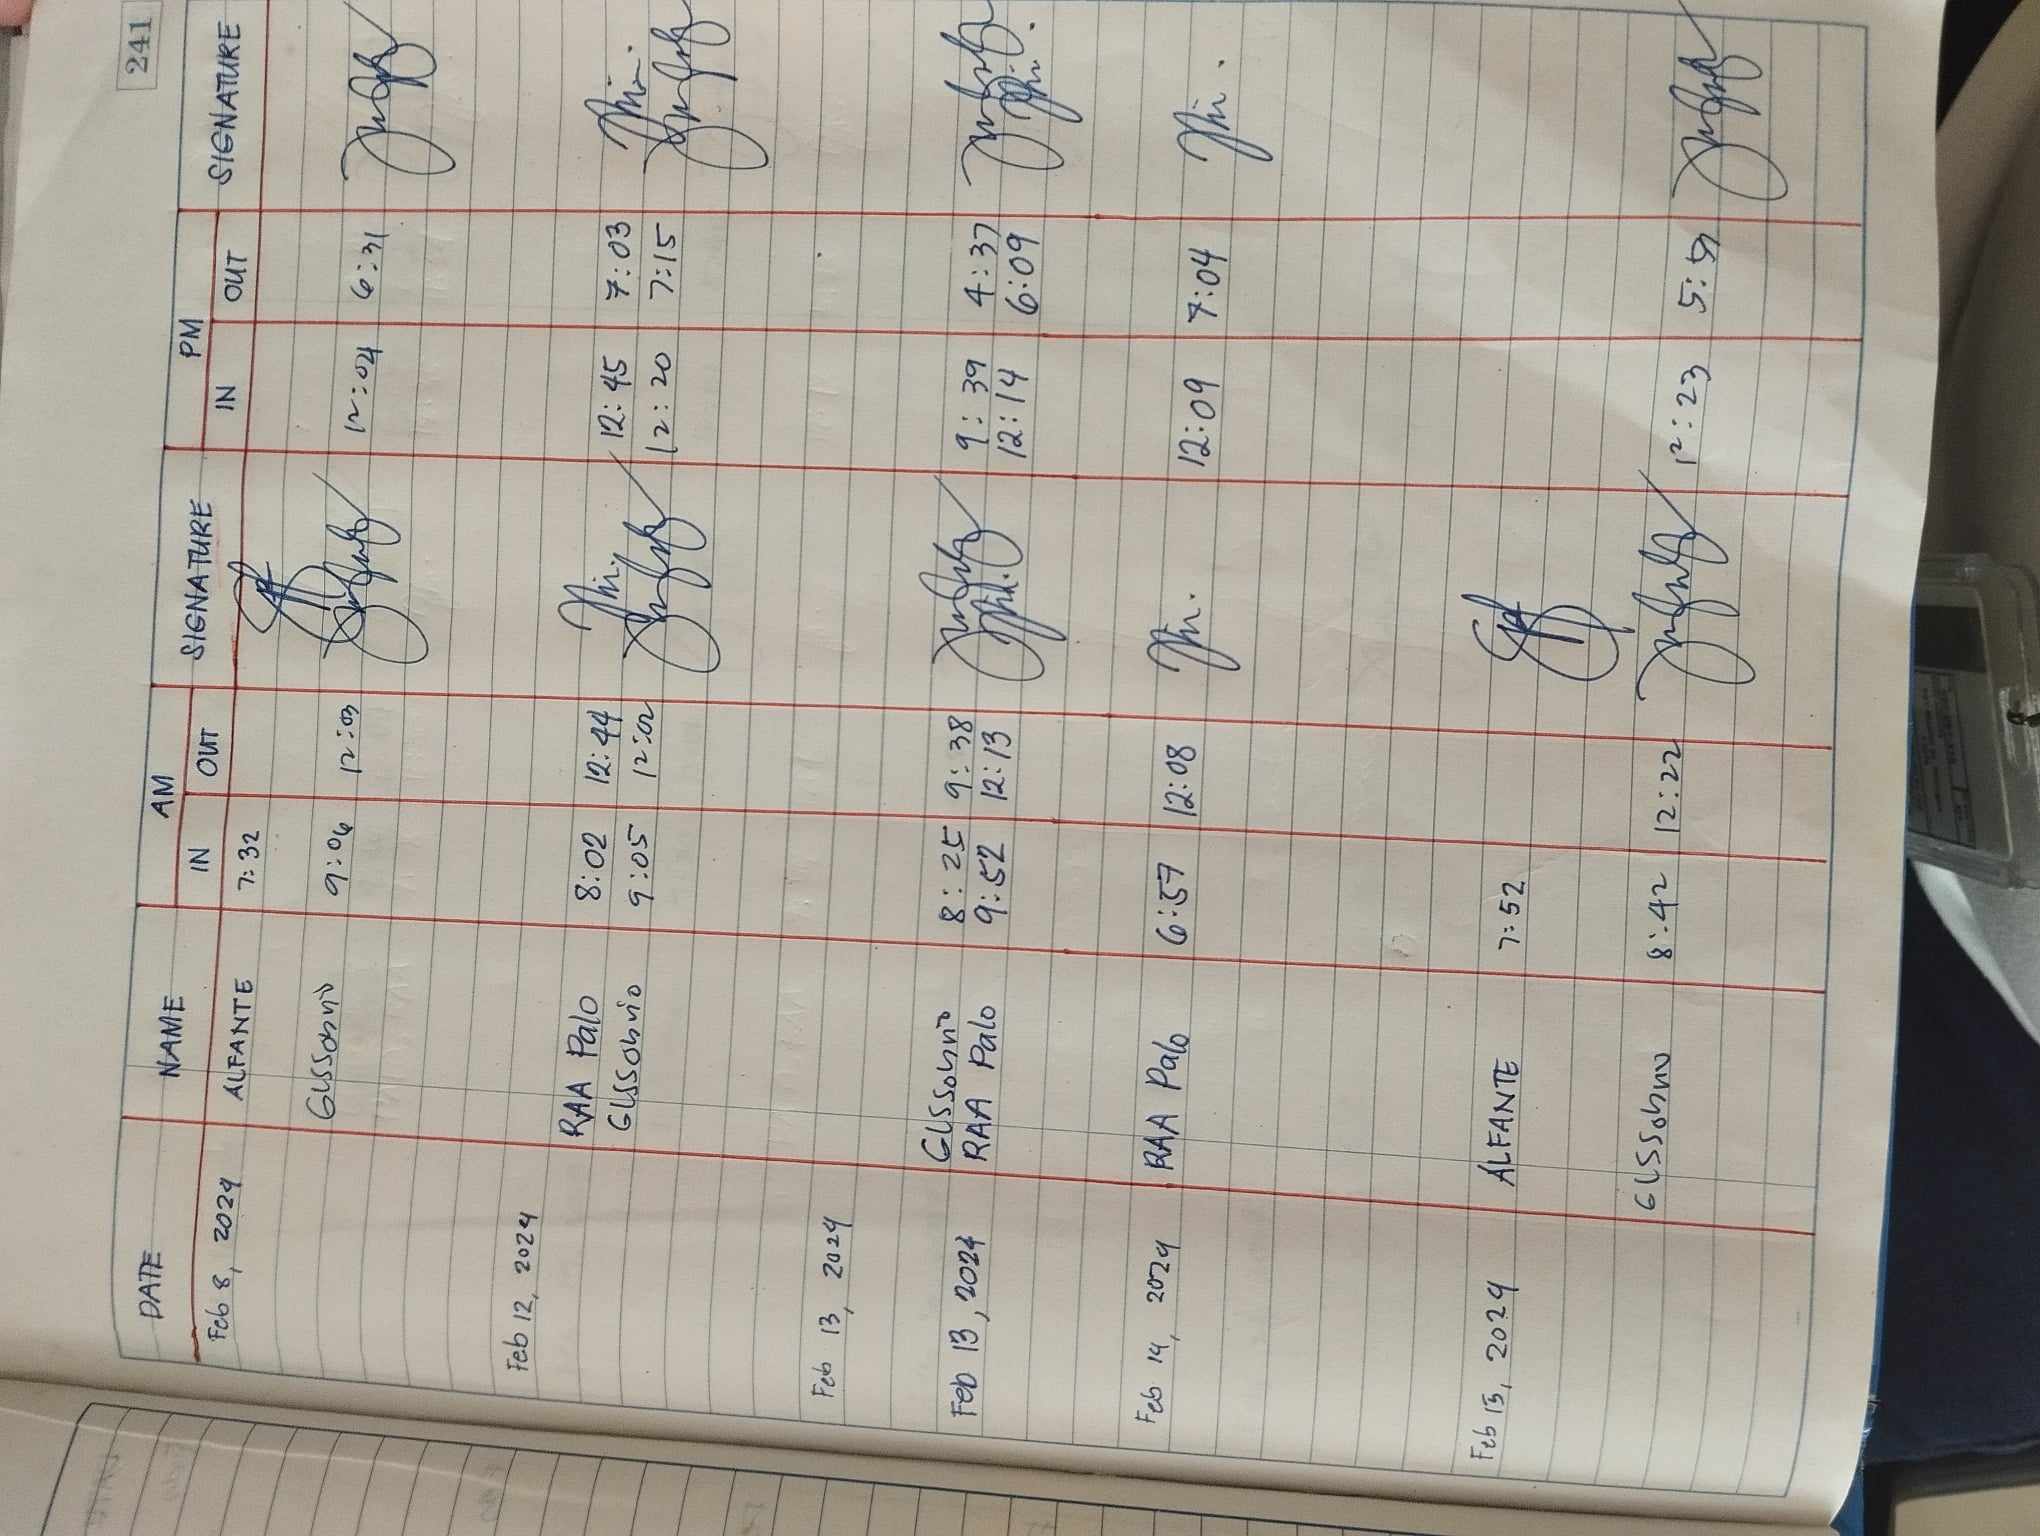 241
DATE NAME AM SIGNATURE PM SIGNATURE
IN OUT IN OUT
Feb 8, 2024 ALFANTE 7:32
GLSSobrio 9:06 12:03 12:04 6:31
Feb 12, 2024
RAA Palo 8:02 12:44 12:45 7:03
GLSSobrio 9:05 12:02 12:20 7:15
Feb 13, 2024
Feb 13, 2024 GLSSobrio 8:25 9:38 9:39 4:37
RAA Palo 9:52 12:13 12:14 6:09
Feb 14, 2024 RAA Palo 6:57 12:08 12:09 7:04
Feb 13, 2024 ALFANTE 7:52
GLSSobrio 8:42 12:22 12:23